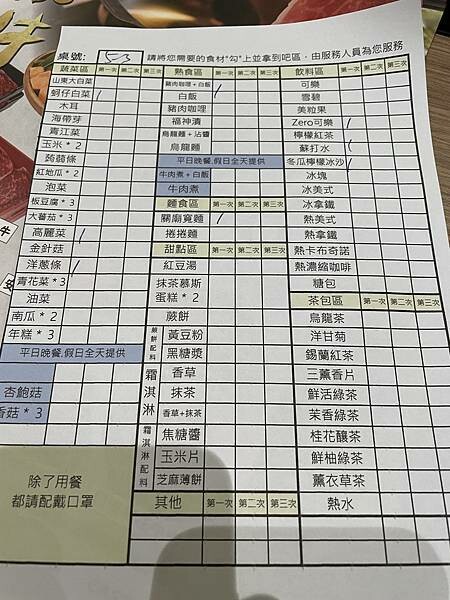 桌號: 53 請將您需要的食材"勾"上並拿到吧區,由服務人員為您服務
蔬菜區 第一次 第二次 第三次
山東大白菜
蚵仔白菜
木耳
海帶芽
青江菜
玉米 * 2
蒟蒻條
紅地瓜 * 2
泡菜
板豆腐 * 3
大蕃茄 * 3
高麗菜
金針菇
洋蔥條
青花菜 * 3
油菜
南瓜 * 2
年糕 * 3
平日晚餐,假日全天提供
杏鮑菇
香菇 * 3
除了用餐
都請配戴口罩
熟食區 第一次 第二次 第三次
豬肉咖哩 + 白飯
白飯
豬肉咖哩
福神漬
烏龍麵 + 沾醬
烏龍麵
平日晚餐,假日全天提供
牛肉煮 + 白飯
牛肉煮
麵食區 第一次 第二次 第三次
關廟寬麵
捲捲麵
甜點區 第一次 第二次 第三次
紅豆湯
抹茶慕斯
蛋糕 * 2
蕨餅
蕨餅配料
黃豆粉
黑糖漿
霜淇淋
香草
抹茶
香草+抹茶
霜淇淋配料
焦糖醬
玉米片
芝麻薄餅
其他 第一次 第二次 第三次
飲料區 第一次 第二次 第三次
可樂
雪碧
美粒果
Zero可樂
檸檬紅茶
蘇打水
冬瓜檸檬冰沙
冰塊
冰美式
冰拿鐵
熱美式
熱拿鐵
熱卡布奇諾
熱濃縮咖啡
糖包
茶包區 第一次 第二次 第三次
烏龍茶
洋甘菊
錫蘭紅茶
三薰香片
鮮活綠茶
茉香綠茶
桂花釀茶
鮮柚綠茶
薰衣草茶
熱水
牛